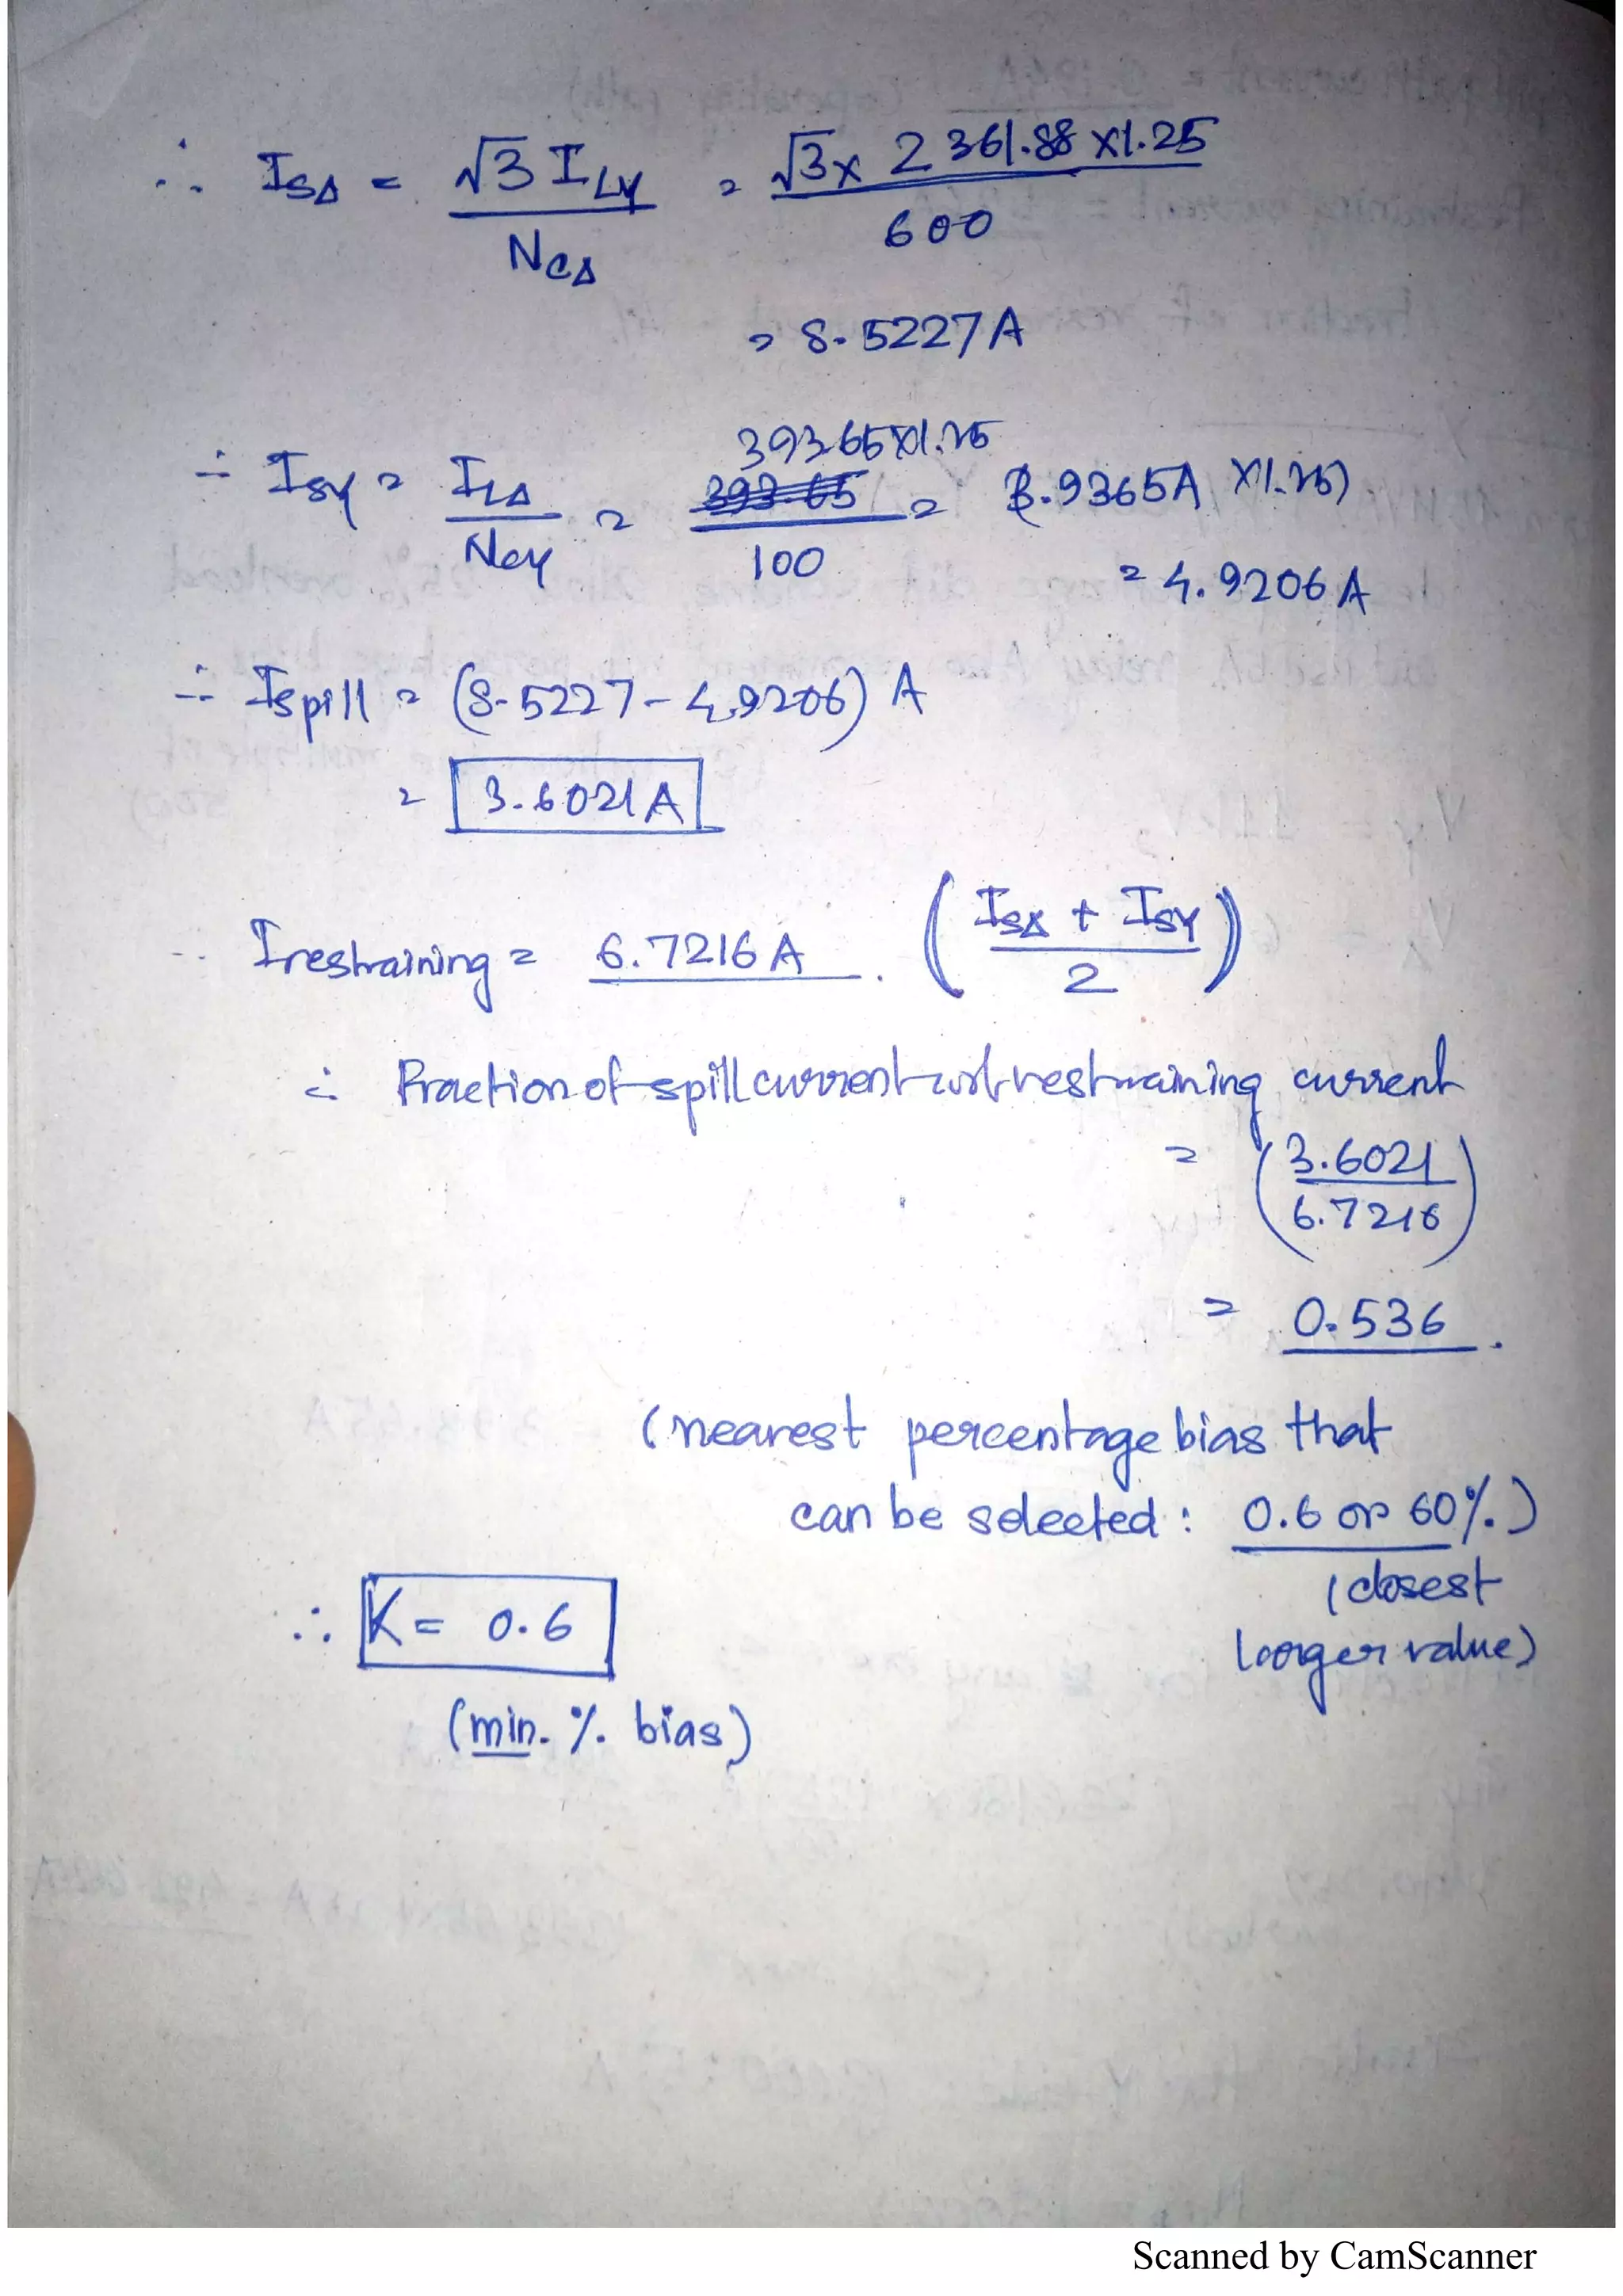 ∴ ISΔ = √3 ILY / NCΔ = √3 x 2361.88 x1.25 / 600
= 8.5227A
∴ ISY = ILΔ / NCY = 393.65 x1.25 / 100 = 3.9365A x1.25)
= 4.9206 A
∴ Ispill = (8.5227 - 4.9206) A
= 3.6021A
∴ Irestraining = 6.7216 A. (ISΔ + ISY / 2)
∴ Fraction of spill current wrt restraining current
= (3.6021 / 6.7216)
= 0.536.
(nearest percentage bias that
can be selected: 0.6 or 60%.)
(closest
larger value)
∴ K = 0.6
(min. %. bias)
Scanned by CamScanner